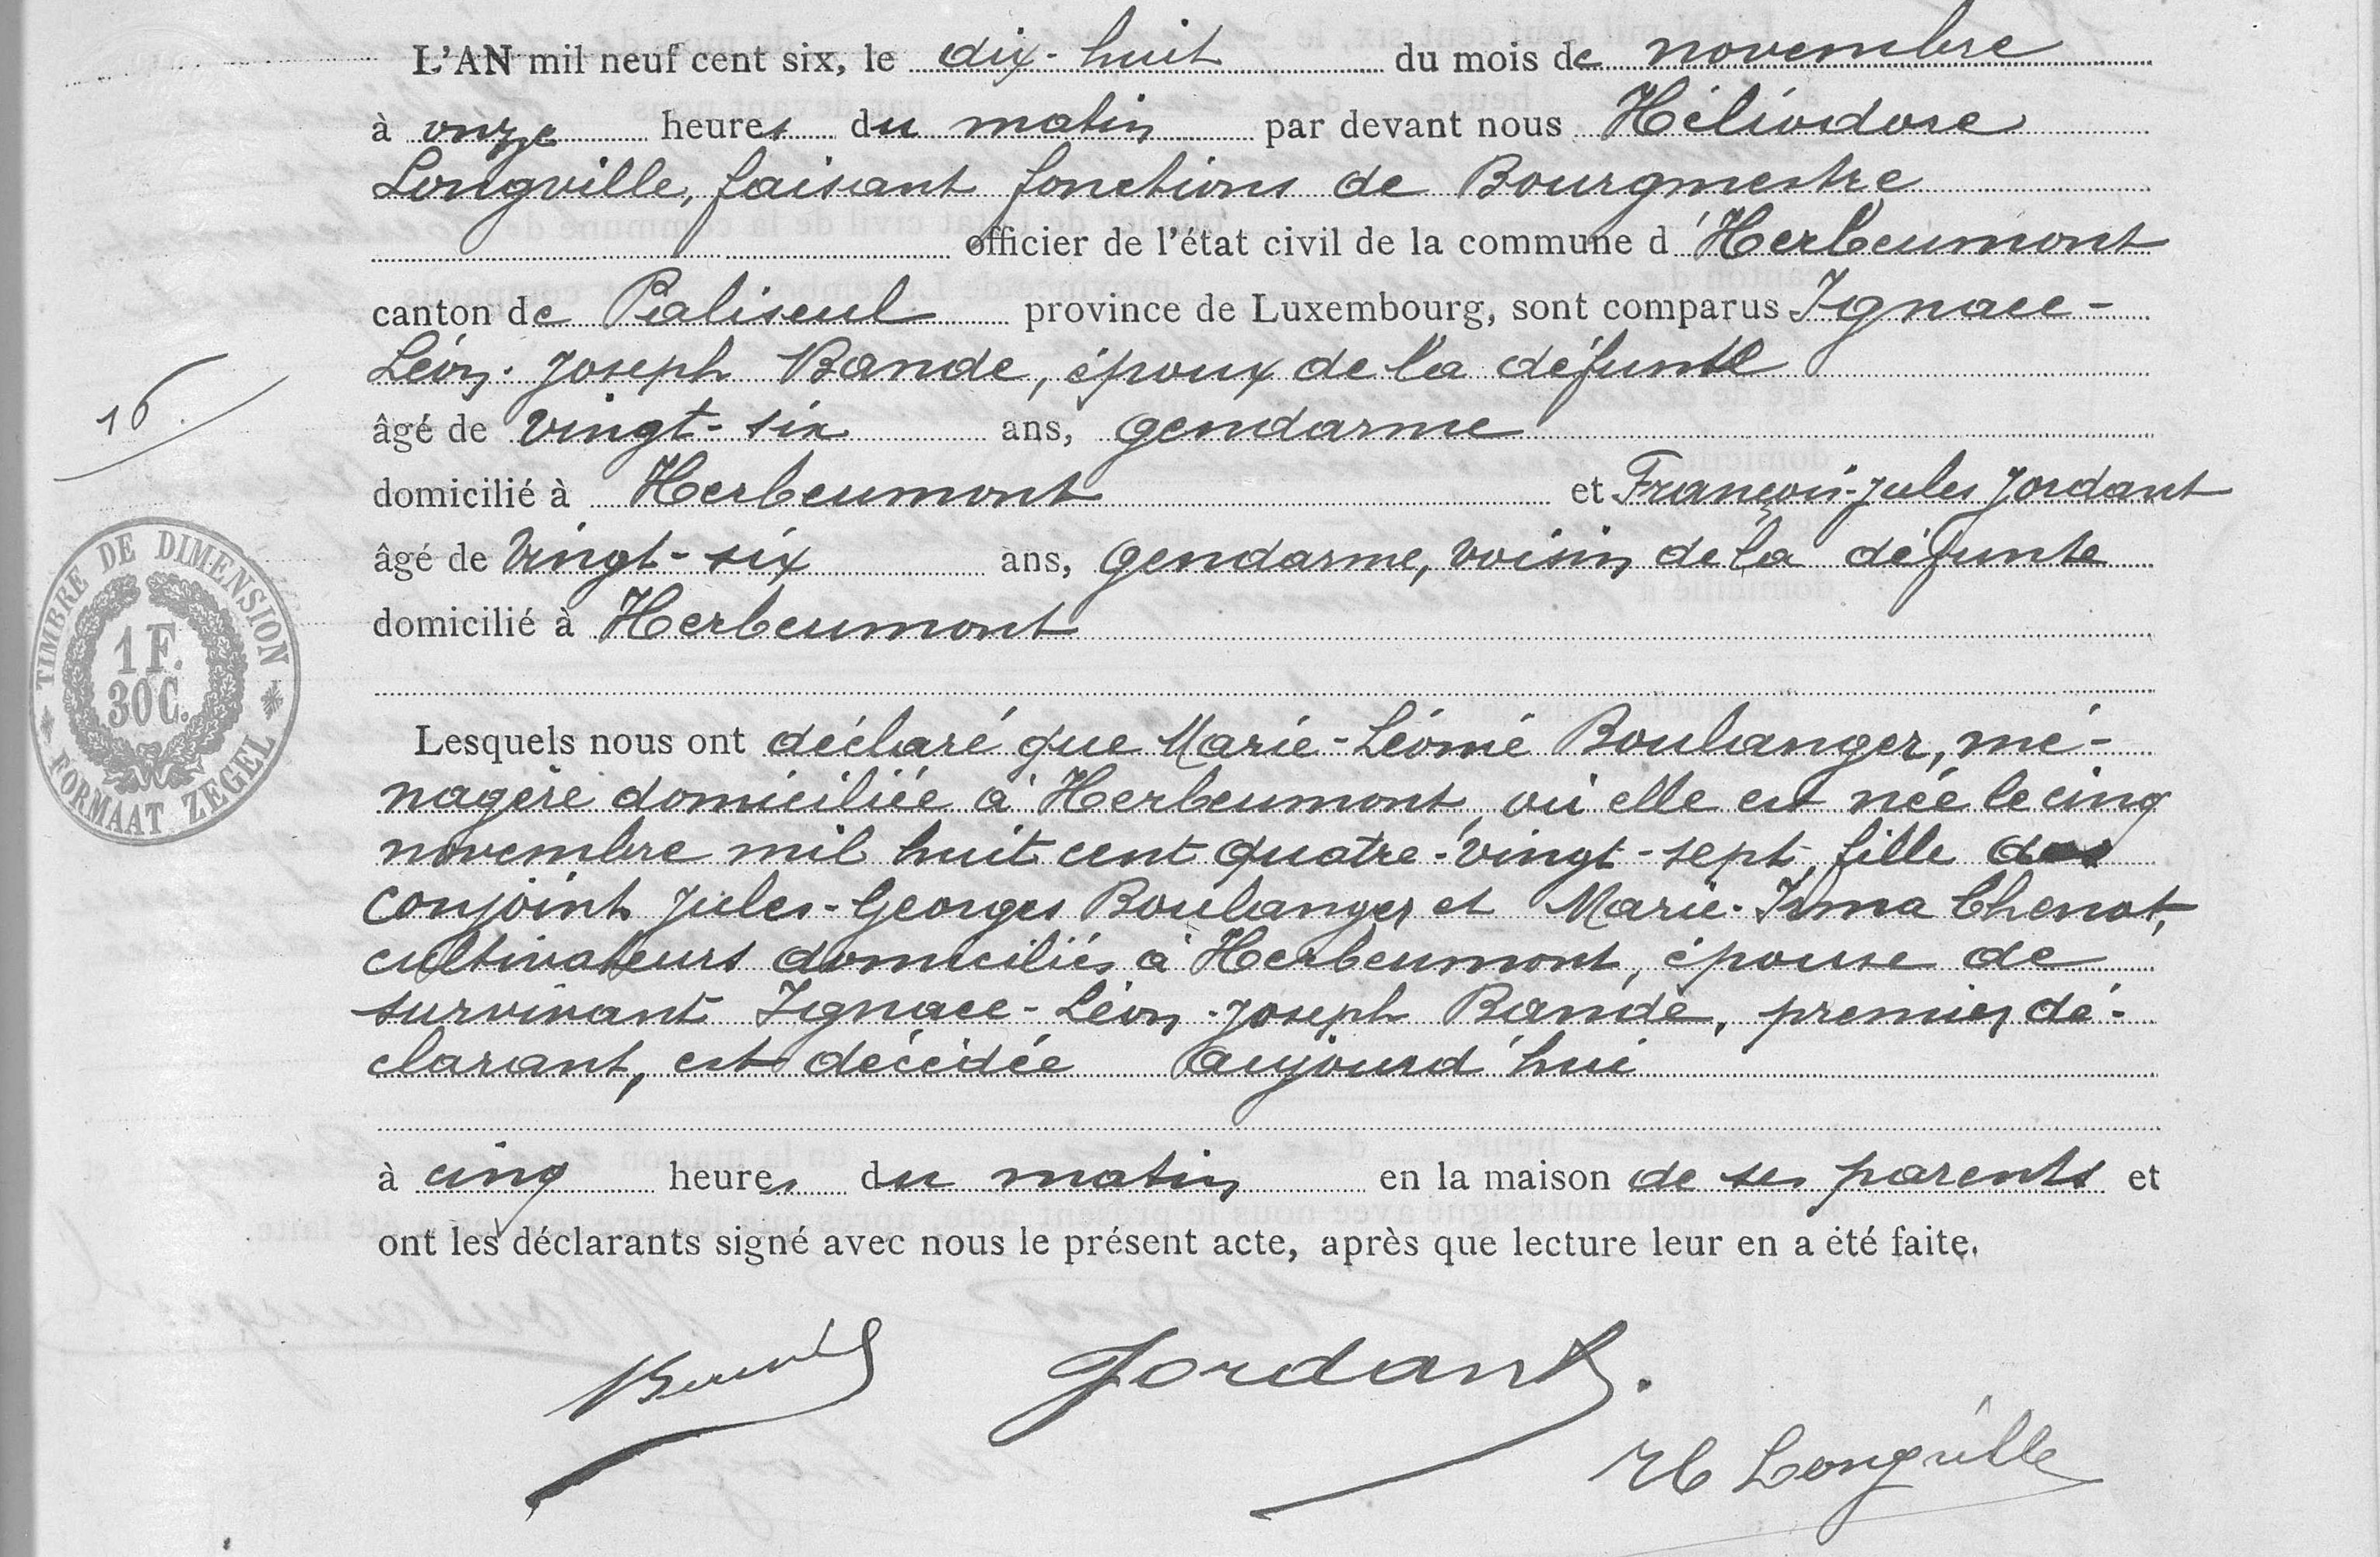 L'AN mil neuf cent six, le dix-huit du mois de novembre
à onze heures du matin par devant nous Héliodore
Longville, faisant fonctions de Bourgmestre
officier de l'état civil de la commune d'Herbeumont
canton de Paliseul province de Luxembourg, sont comparus Ignace-
Léon-Joseph Bande, époux de la défunte
16.
âgé de vingt-six ans, gendarme
domicilié à Herbeumont et François-Jules Jordant
âgé de vingt-six ans, gendarme, voisin de la défunte
domicilié à Herbeumont
TIMBRE DE DIMENSION
1 F.
30 C.
FORMAAT ZEGEL
Lesquels nous ont déclaré que Marie-Léonie Boulanger, mé-
nagère domiciliée à Herbeumont, où elle est née le cinq
novembre mil huit cent quatre-vingt-sept, fille des
conjoints Jules-Georges Boulanger et Marie-Irma Chenot,
cultivateurs domiciliés à Herbeumont, épouse de
survivant Ignace-Léon-Joseph Bande, premier dé-
clarant, est décédée aujourd'hui
à cinq heures du matin en la maison de ses parents et
ont les déclarants signé avec nous le présent acte, après que lecture leur en a été faite.
Bande Jordant.
H Longville